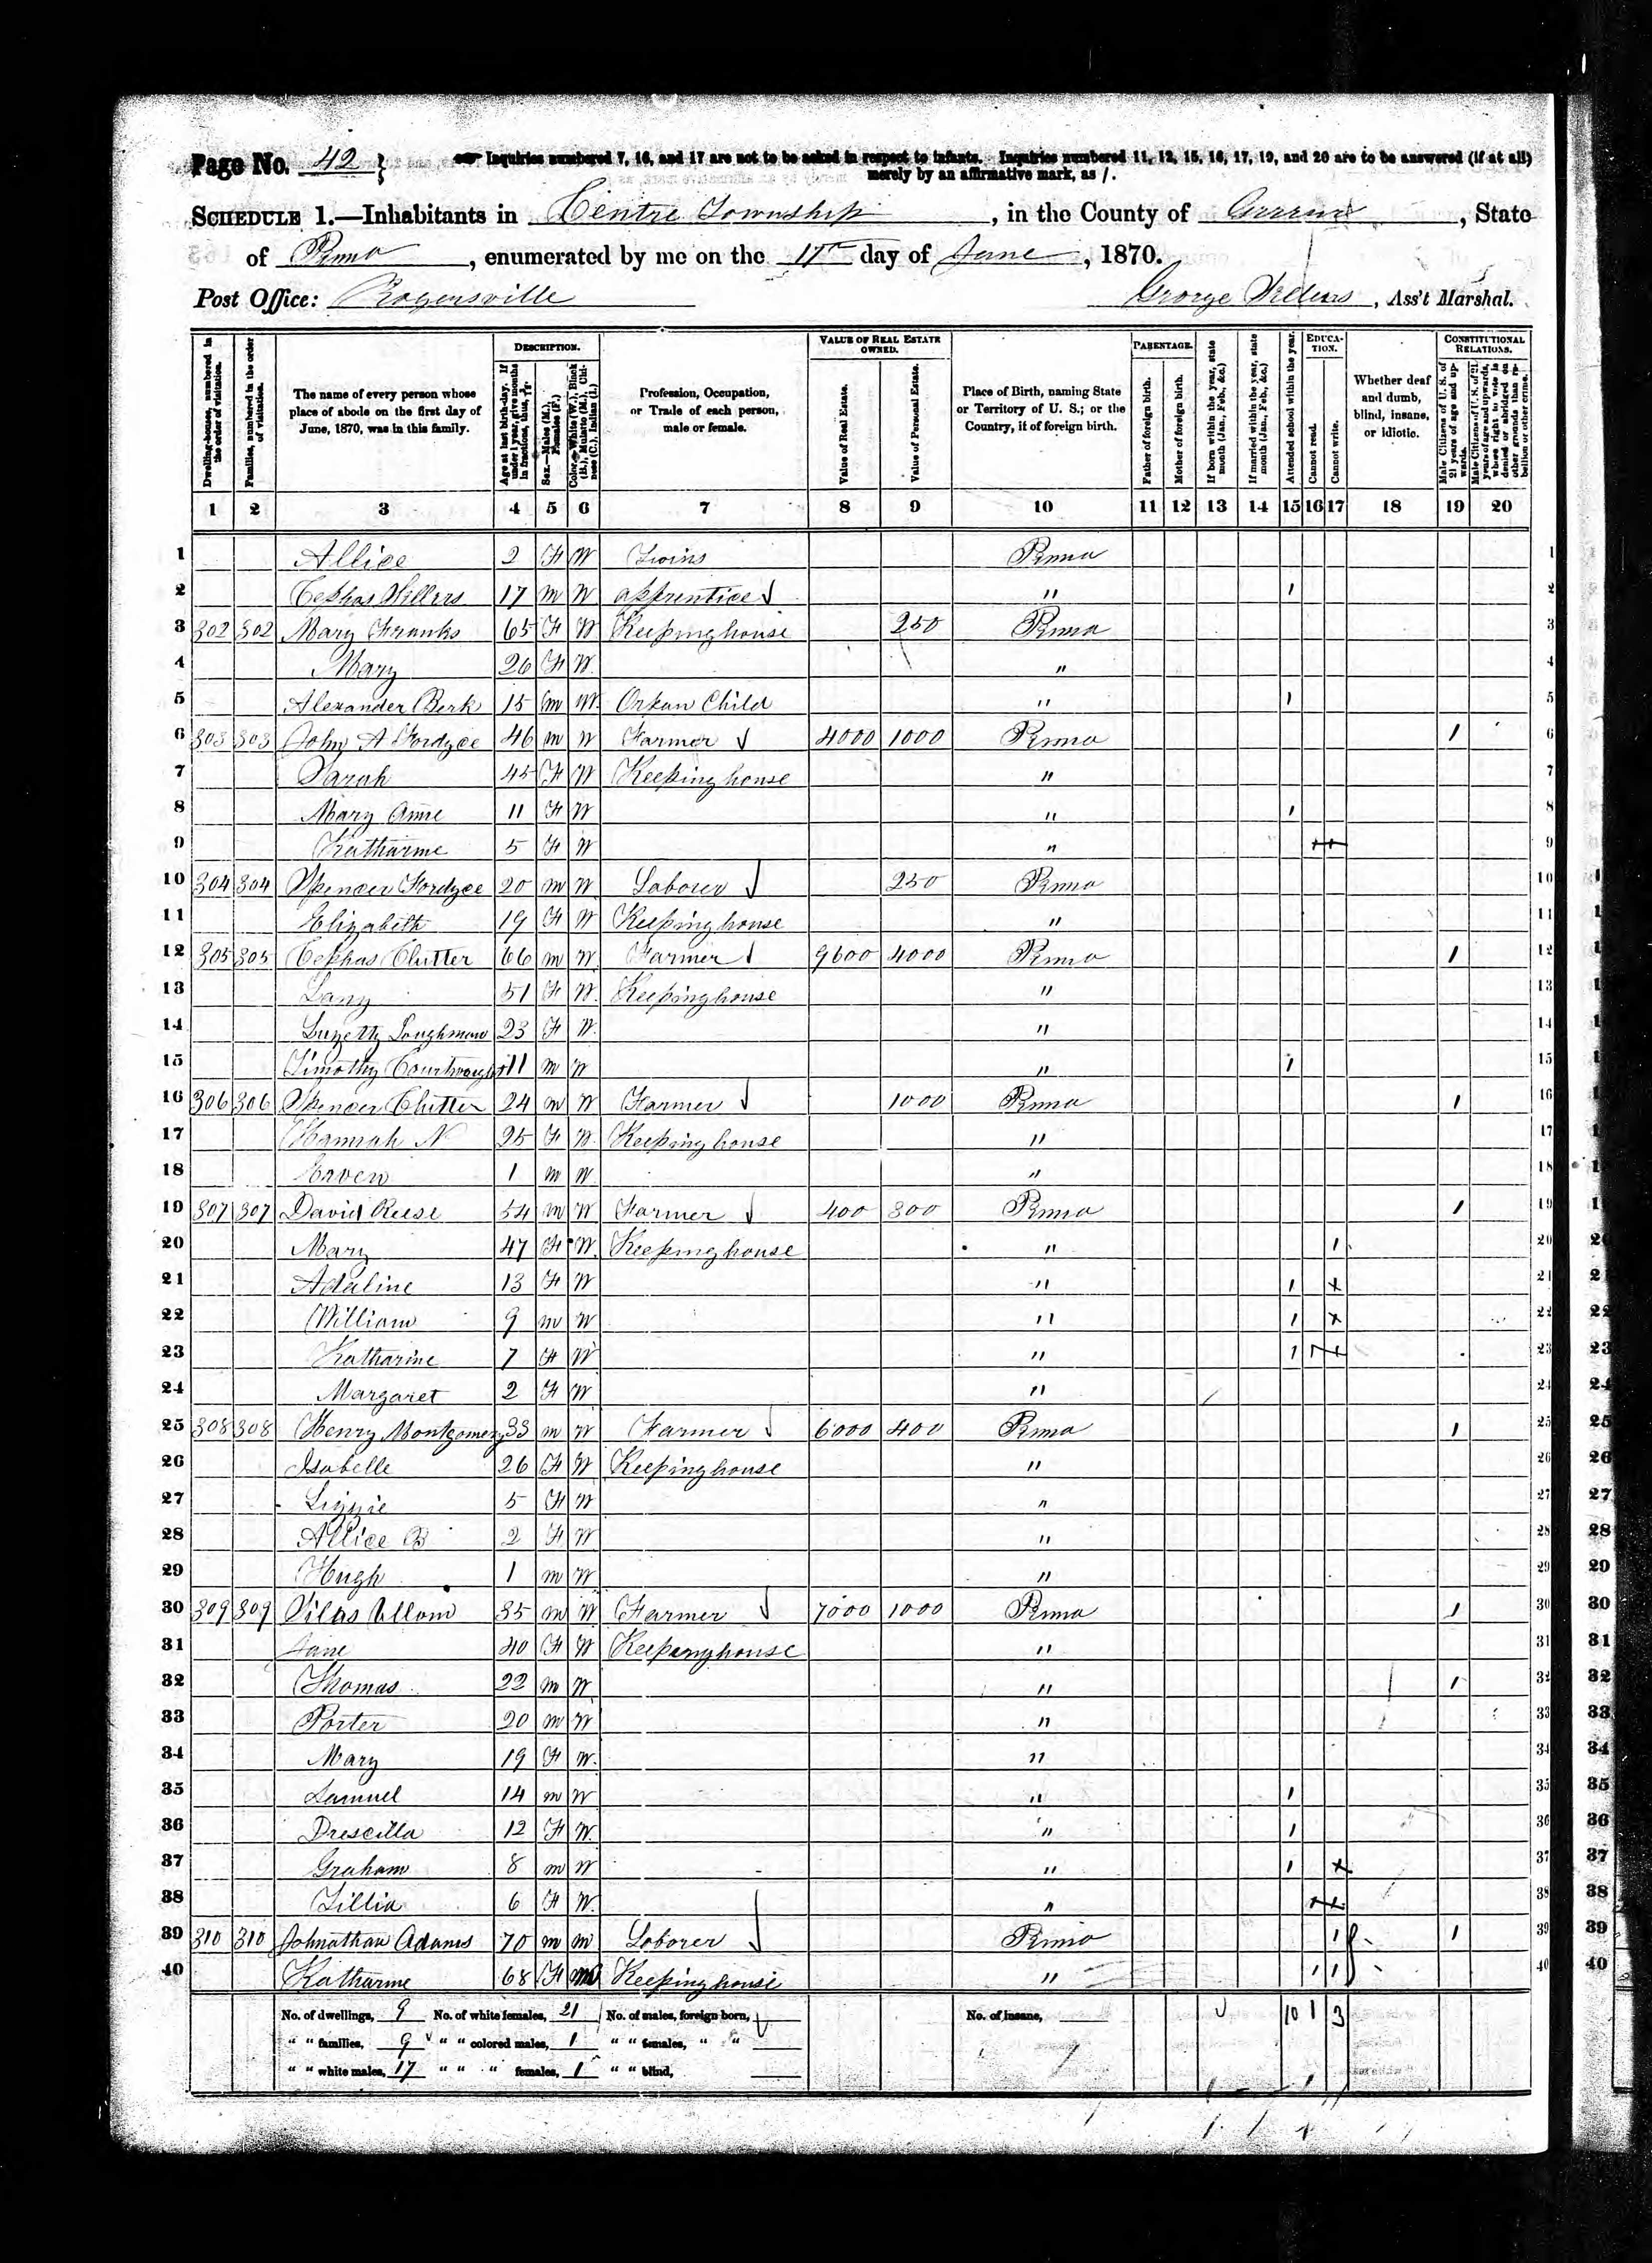 Page No. 42 } Inquiries numbered 7, 16, and 17 are not to be asked in respect to infants. Inquiries numbered 11, 12, 15, 16, 17, 19, and 20 are to be answered (if at all)
merely by an affirmative mark, as /.
SCHEDULE 1.—Inhabitants in Centre Township, in the County of, State
of Penna, enumerated by me on the 17th day of June, 1870.
Post Office: Rogersville George, Ass't Marshal.
Dwelling-houses, numbered in the order of visitation.
Families, numbered in the order of visitation.
The name of every person whose place of abode on the first day of June, 1870, was in this family.
DESCRIPTION.
Age at last birth-day. If under 1 year, give months in fractions, thus,
Sex.—Males (M.), Females (F.)
Color.—White (W.), Black (B.), Mulatto (M.), Chinese (C.), Indian (I.)
Profession, Occupation, or Trade of each person, male or female.
VALUE OF REAL ESTATE OWNED.
Value of Real Estate.
Value of Personal Estate.
Place of Birth, naming State or Territory of U. S.; or the Country, if of foreign birth.
PARENTAGE.
Father of foreign birth.
Mother of foreign birth.
If born within the year, state month (Jan. Feb, &c.)
If married within the year, state month (Jan. Feb, &c.)
Attended school within the year.
EDUCATION.
Cannot read.
Cannot write.
Whether deaf and dumb, blind, insane, or idiotic.
CONSTITUTIONAL RELATIONS.
Male Citizens of U. S. of 21 years of age and upwards.
Male Citizens of U. S. of 21 years of age and upwards, where right to vote is denied or abridged on other grounds than rebellion or other crime.
1 2 3 4 5 6 7 8 9 10 11 12 13 14 15 16 17 18 19 20
1 Allice 2 F W Twins Penna 1
2 Cephas 17 m W apprentice " 1 2
3 302 302 Mary Franks 65 F W Keeping house 250 Penna 3
4 Mary 26 F W " 4
5 Alexander Berk 15 m W Orfan Child " 1 5
6 303 303 John A Fordyce 46 m W Farmer 4000 1000 Penna 1 6
7 Sarah 45 F W Keeping house " 7
8 Mary Anne 11 F W " 1 8
9 Katharine 5 F W " + + 9
10 304 304 Spencer Fordyce 20 m W Laborer 250 Penna 10
11 Elizabeth 19 F W Keeping house " 11
12 305 305 Cephas Clutter 66 m W Farmer 9600 4000 Penna 1 12
13 51 F W Keeping house " 13
14 Loughman 23 F W " 14
15 Timothy Courtwright 11 m W " 1 15
16 306 306 Spencer Clutter 24 m W Farmer 1000 Penna 1 16
17 Hannah N 25 F W Keeping house " 17
18 1 m W " 18
19 307 307 David Reese 54 m W Farmer 400 300 Penna 1 19
20 Mary 47 F W Keeping house " 1 20
21 Adaline 13 F W " 1 x 21
22 William 9 m W " 1 x 22
23 Katharine 7 F W " 1 x x 23
24 Margaret 2 F W " 24
25 308 308 Henry Montgomery 33 m W Farmer 6000 400 Penna 1 25
26 Isabelle 26 F W Keeping house " 26
27 Lizzie 5 F W " 27
28 Allice B 2 F W " 28
29 Hugh 1 m W " 29
30 309 309 Silas Ullom 35 m W Farmer 7000 1000 Penna 1 30
31 Jane 40 F W Keeping house " 31
32 Thomas 22 m W " 1 32
33 Porter 20 m W " 33
34 Mary 19 F W " 34
35 Samuel 14 m W " 1 35
36 Drescilla 12 F W " 1 36
37 Graham 8 m W " 1 x 37
38 Lillia 6 F W " x x 38
39 310 310 Johnathan Adams 70 m m Laborer Penna 1 1 39
40 Katharine 68 F m Keeping house " 1 1 40
No. of dwellings, 9 No. of white females, 21 No. of males, foreign born, No. of insane, 10 1 3
" " families, 9 " " colored males, 1 " " females, " "
" " white males, 17 " " " females, 1 " " blind,